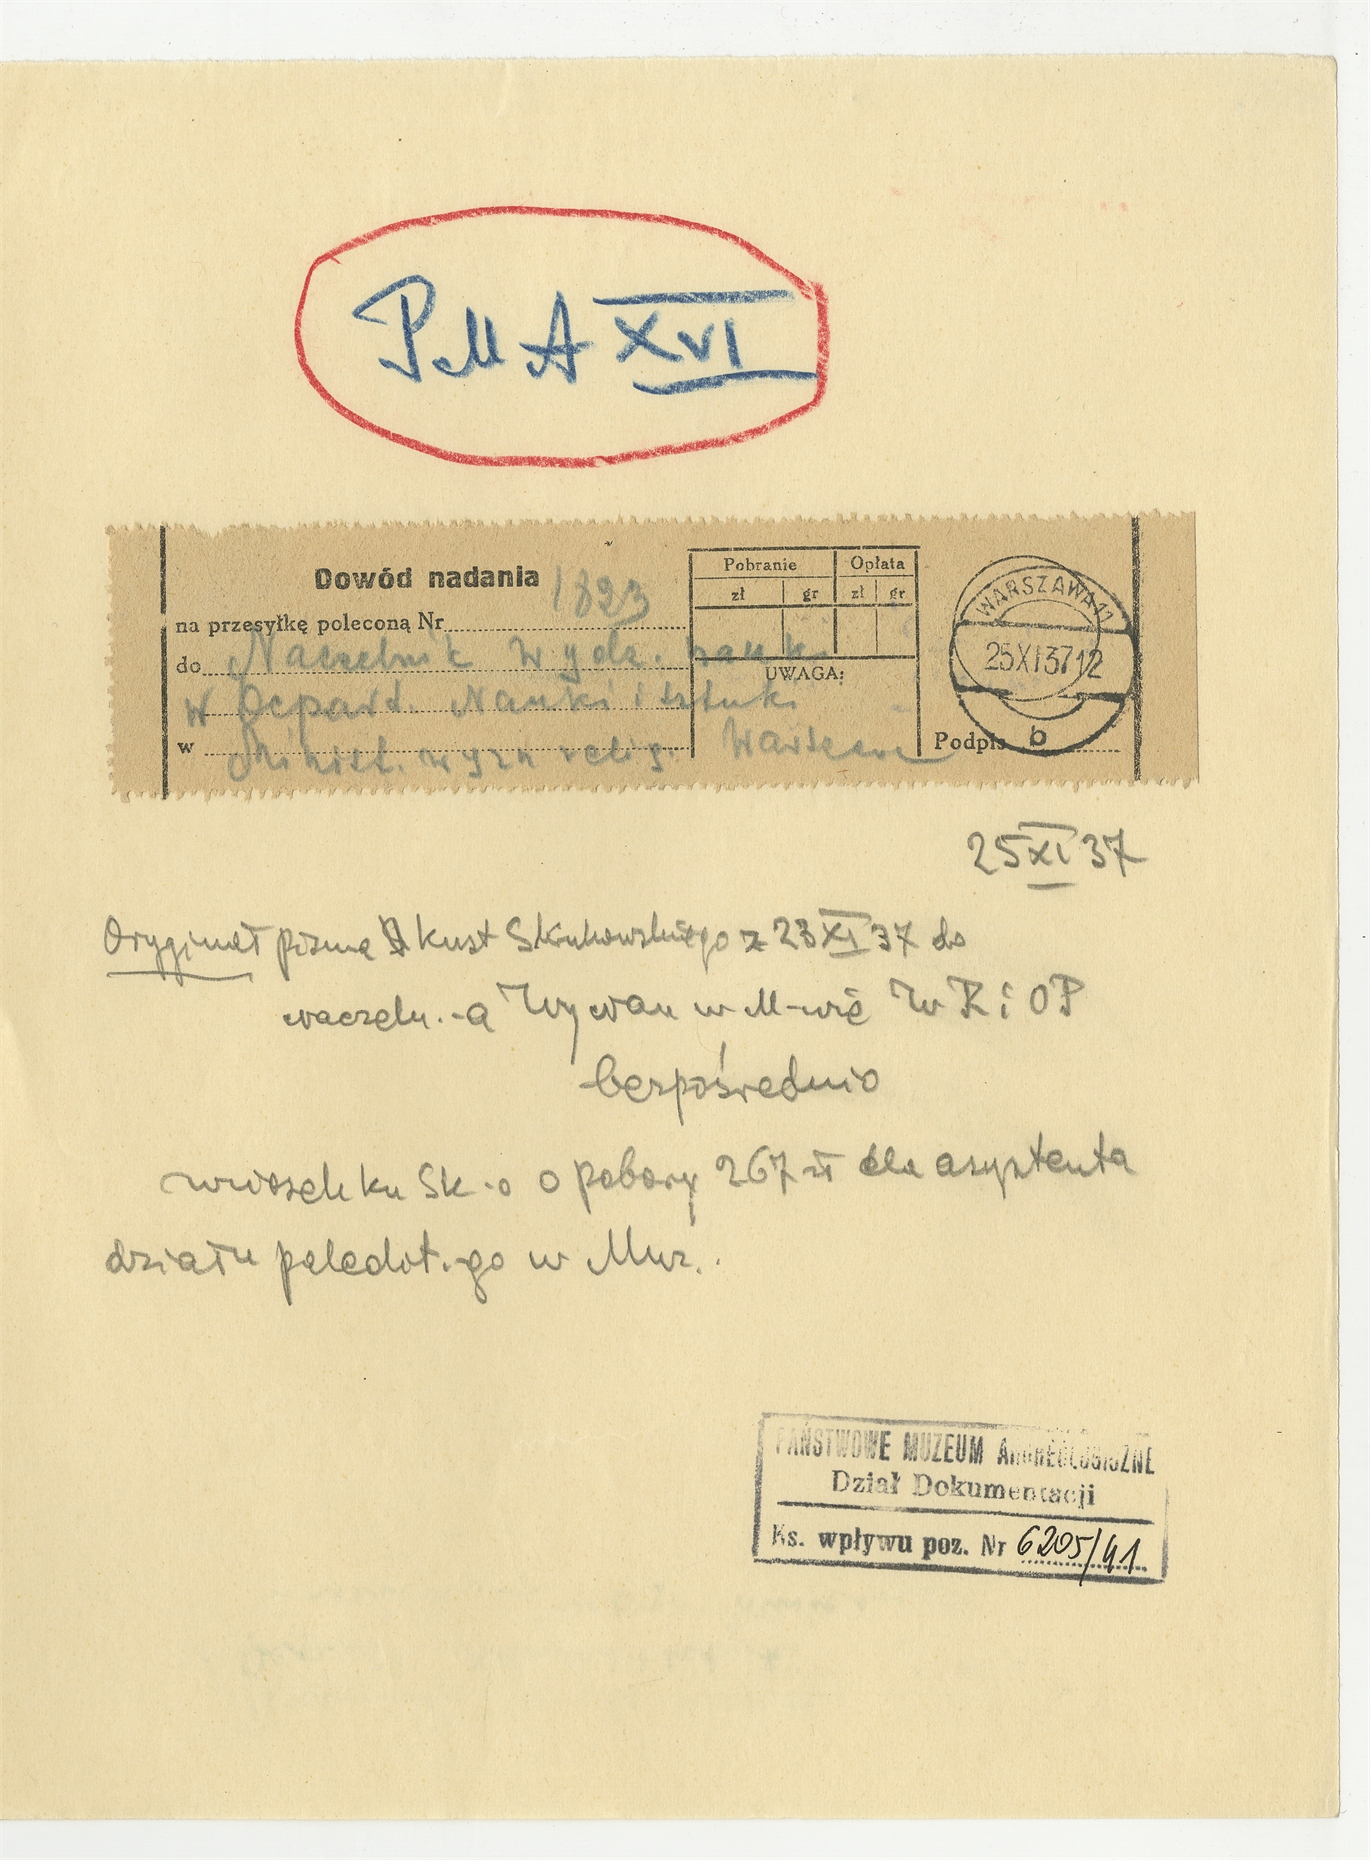 PMA XVI
Dowód nadania 1823
na przesyłkę poleconą Nr
do Naczelnik Wydz. nauki
w Depart. Nauki i sztuki
w Minist. wyzn relig. Warszawa
Pobranie Opłata
zł gr zł gr
UWAGA:
WARSZAWA 11
25XI3712
b
Podpis
25 XI 37
Oryginał pisma kust Skukowskiego z 23 XI 37 do
naczeln.-a w M-wie W R i OP
bezpośrednio
wniosek ku Sk-o o pobory 267 zł dla asystenta
działu paleolot.-go w Muz.
PAŃSTWOWE MUZEUM ARCHEOLOGICZNE
Dział Dokumentacji
Ks. wpływu poz. Nr 6205/41